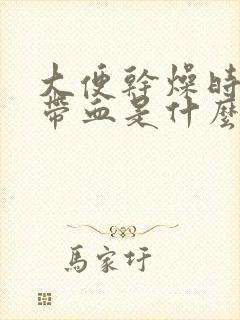 大便幹燥時
帶血是什麼
馬家圩